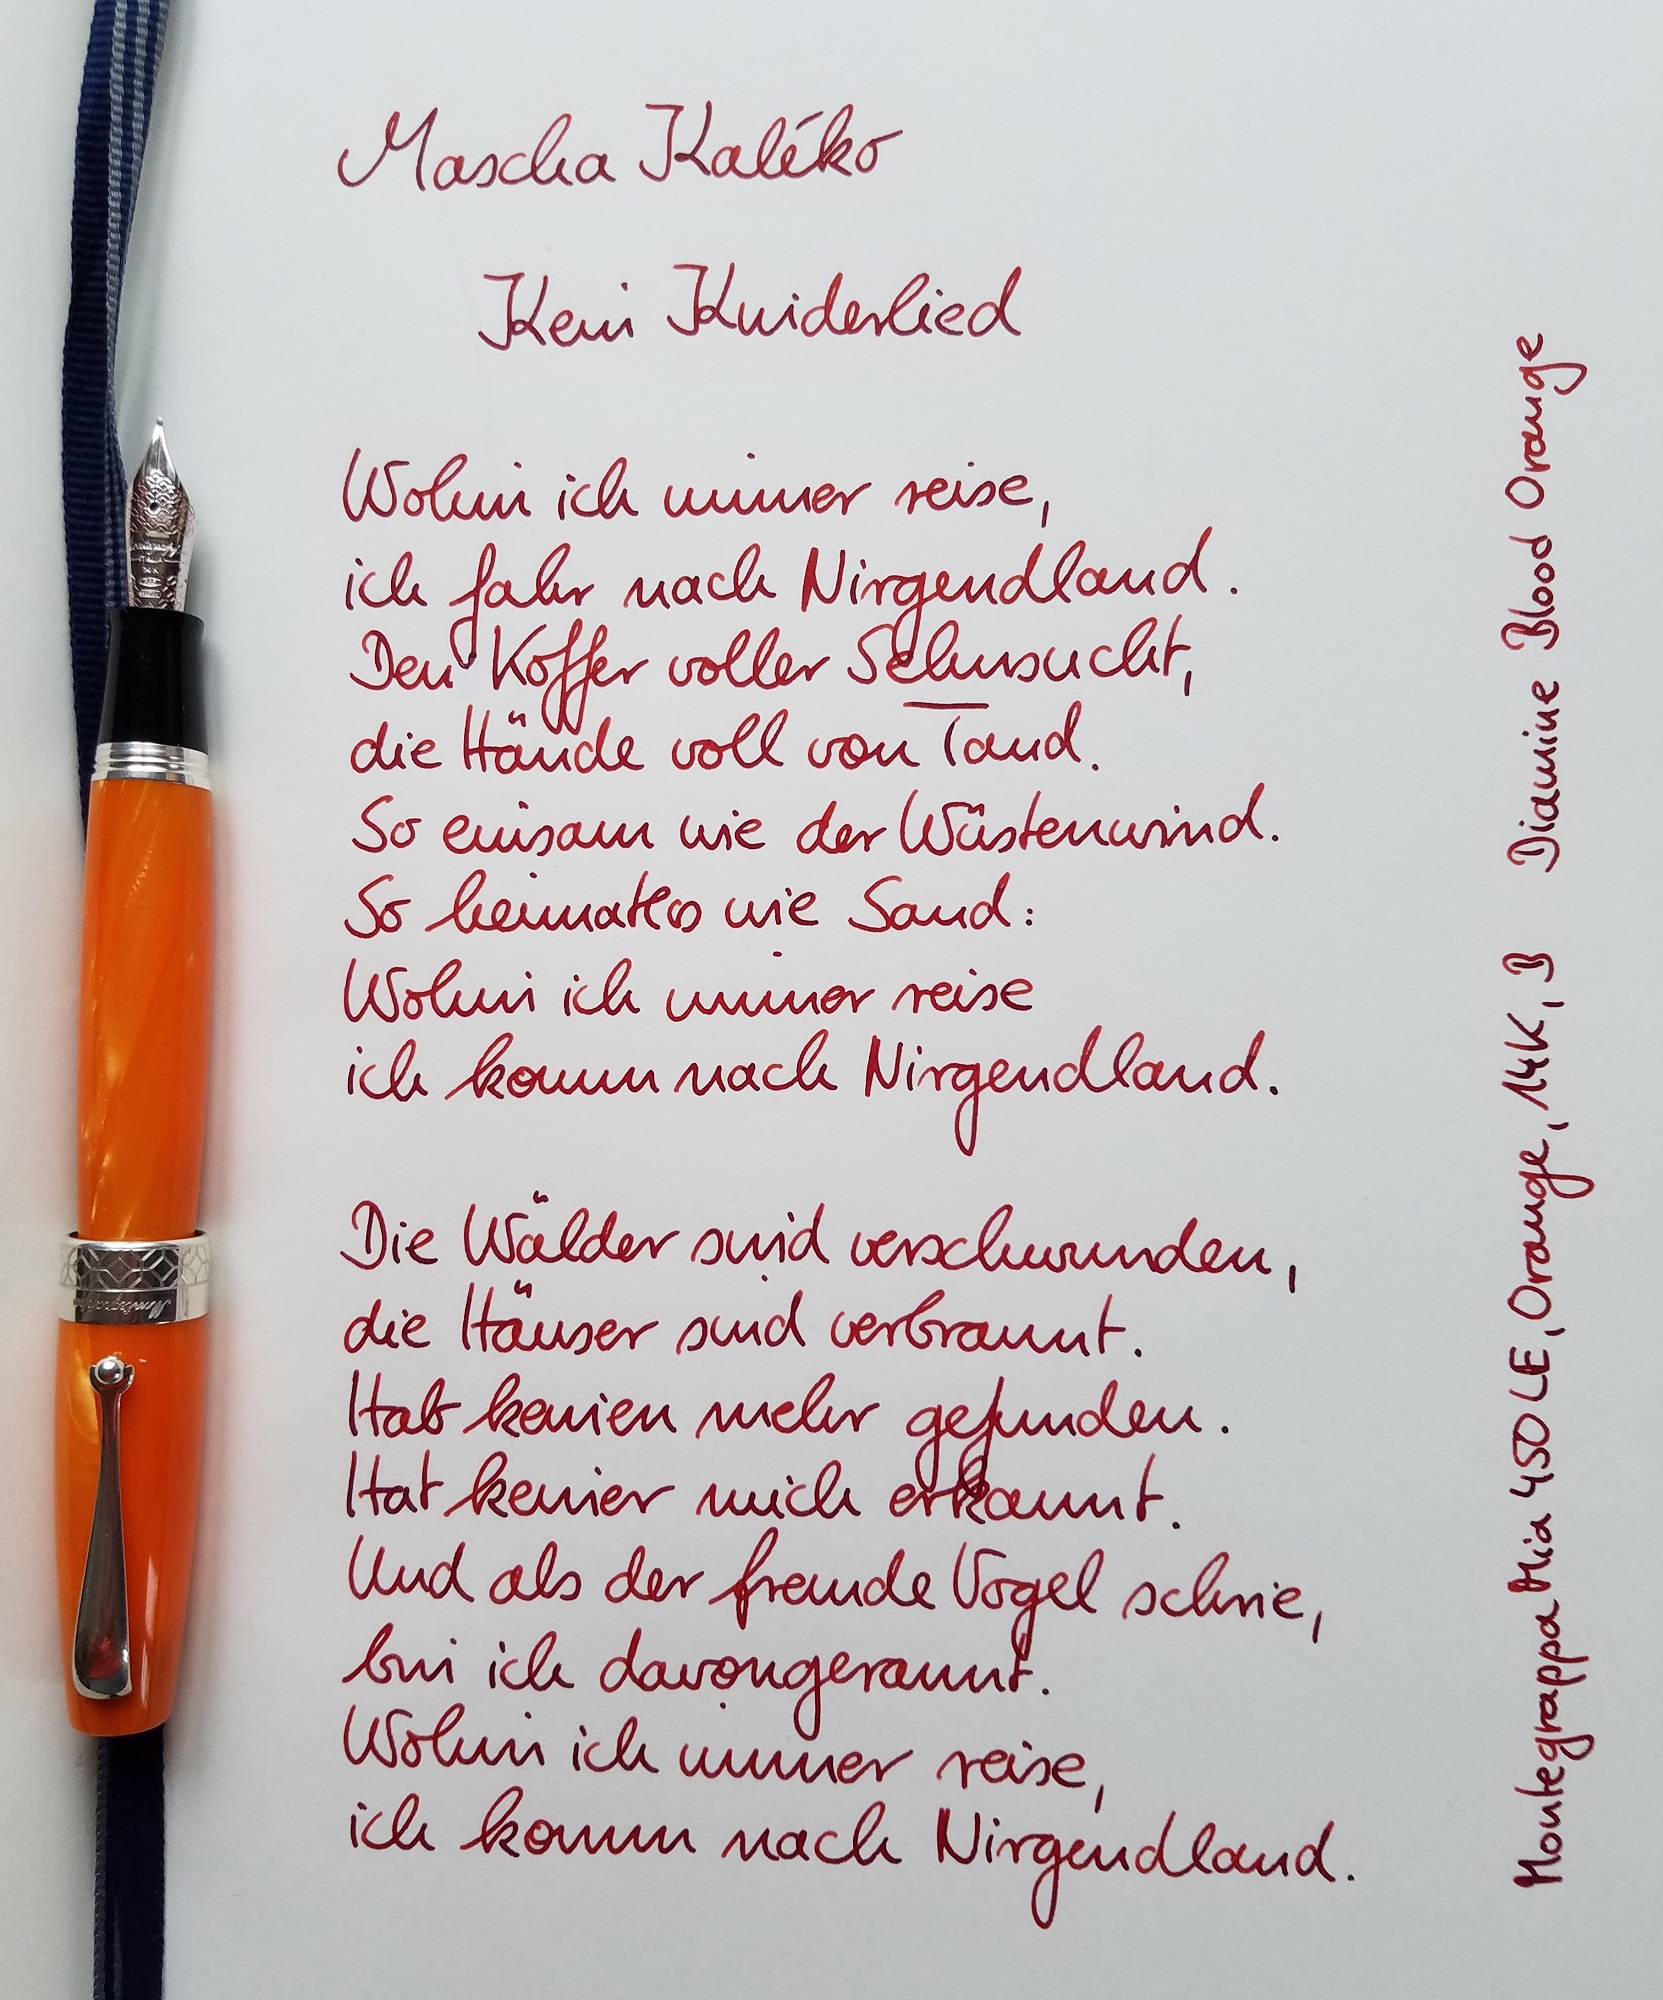 Mascha Kaléko
Kein Kinderlied
Wohin ich immer reise,
ich fahr nach Nirgendland.
Den Koffer voller Sehnsucht,
die Hände voll von Tand.
So einsam wie der Wüstenwind.
So heimatlos wie Sand:
Wohin ich immer reise
ich komm nach Nirgendland.
Die Wälder sind verschwunden,
die Häuser sind verbrannt.
Hab keinen mehr gefunden.
Hat keiner mich erkannt.
Und als der fremde Vogel schrie,
bin ich davongerannt.
Wohin ich immer reise,
ich komm nach Nirgendland.
Montegrappa Mia 450 LE, Orange, 14K, B Diamine Blood Orange